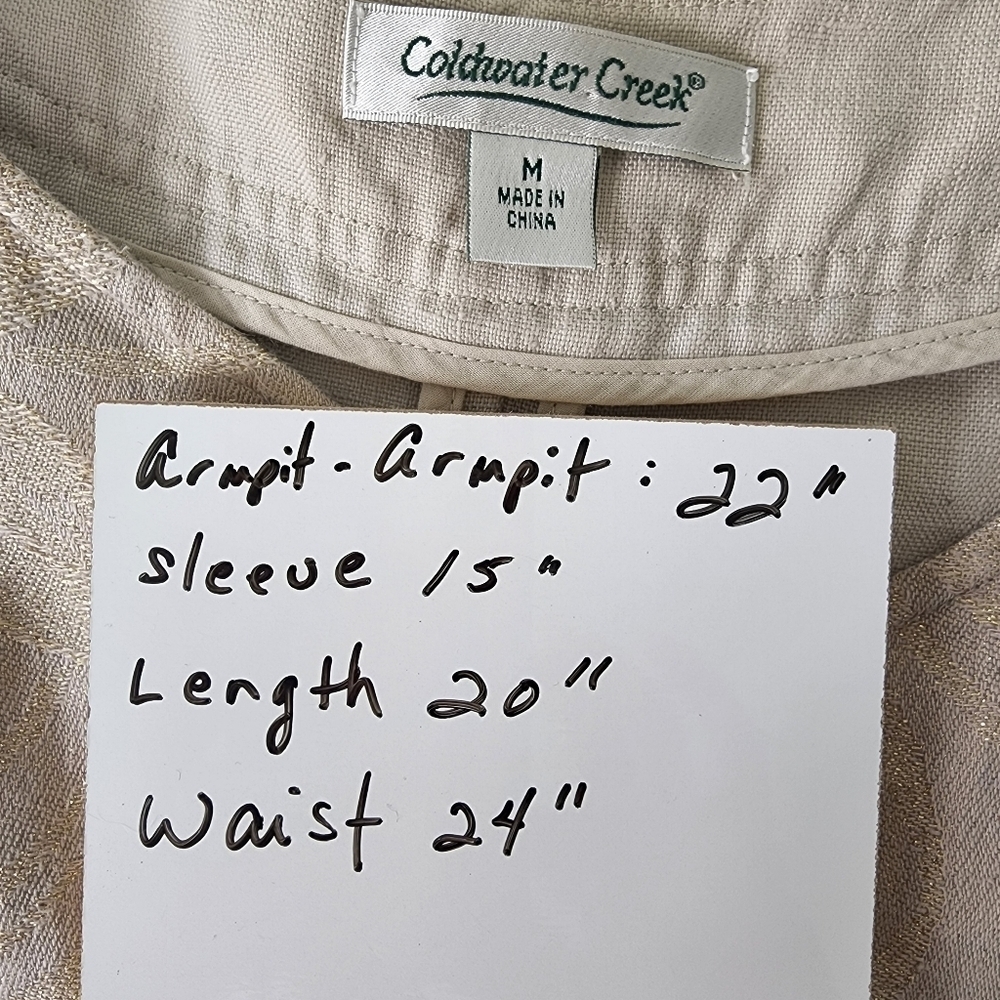 Coldwater Creek®
M
MADE IN
CHINA
Armpit - Armpit : 22"
sleeve 15"
Length 20"
Waist 24"